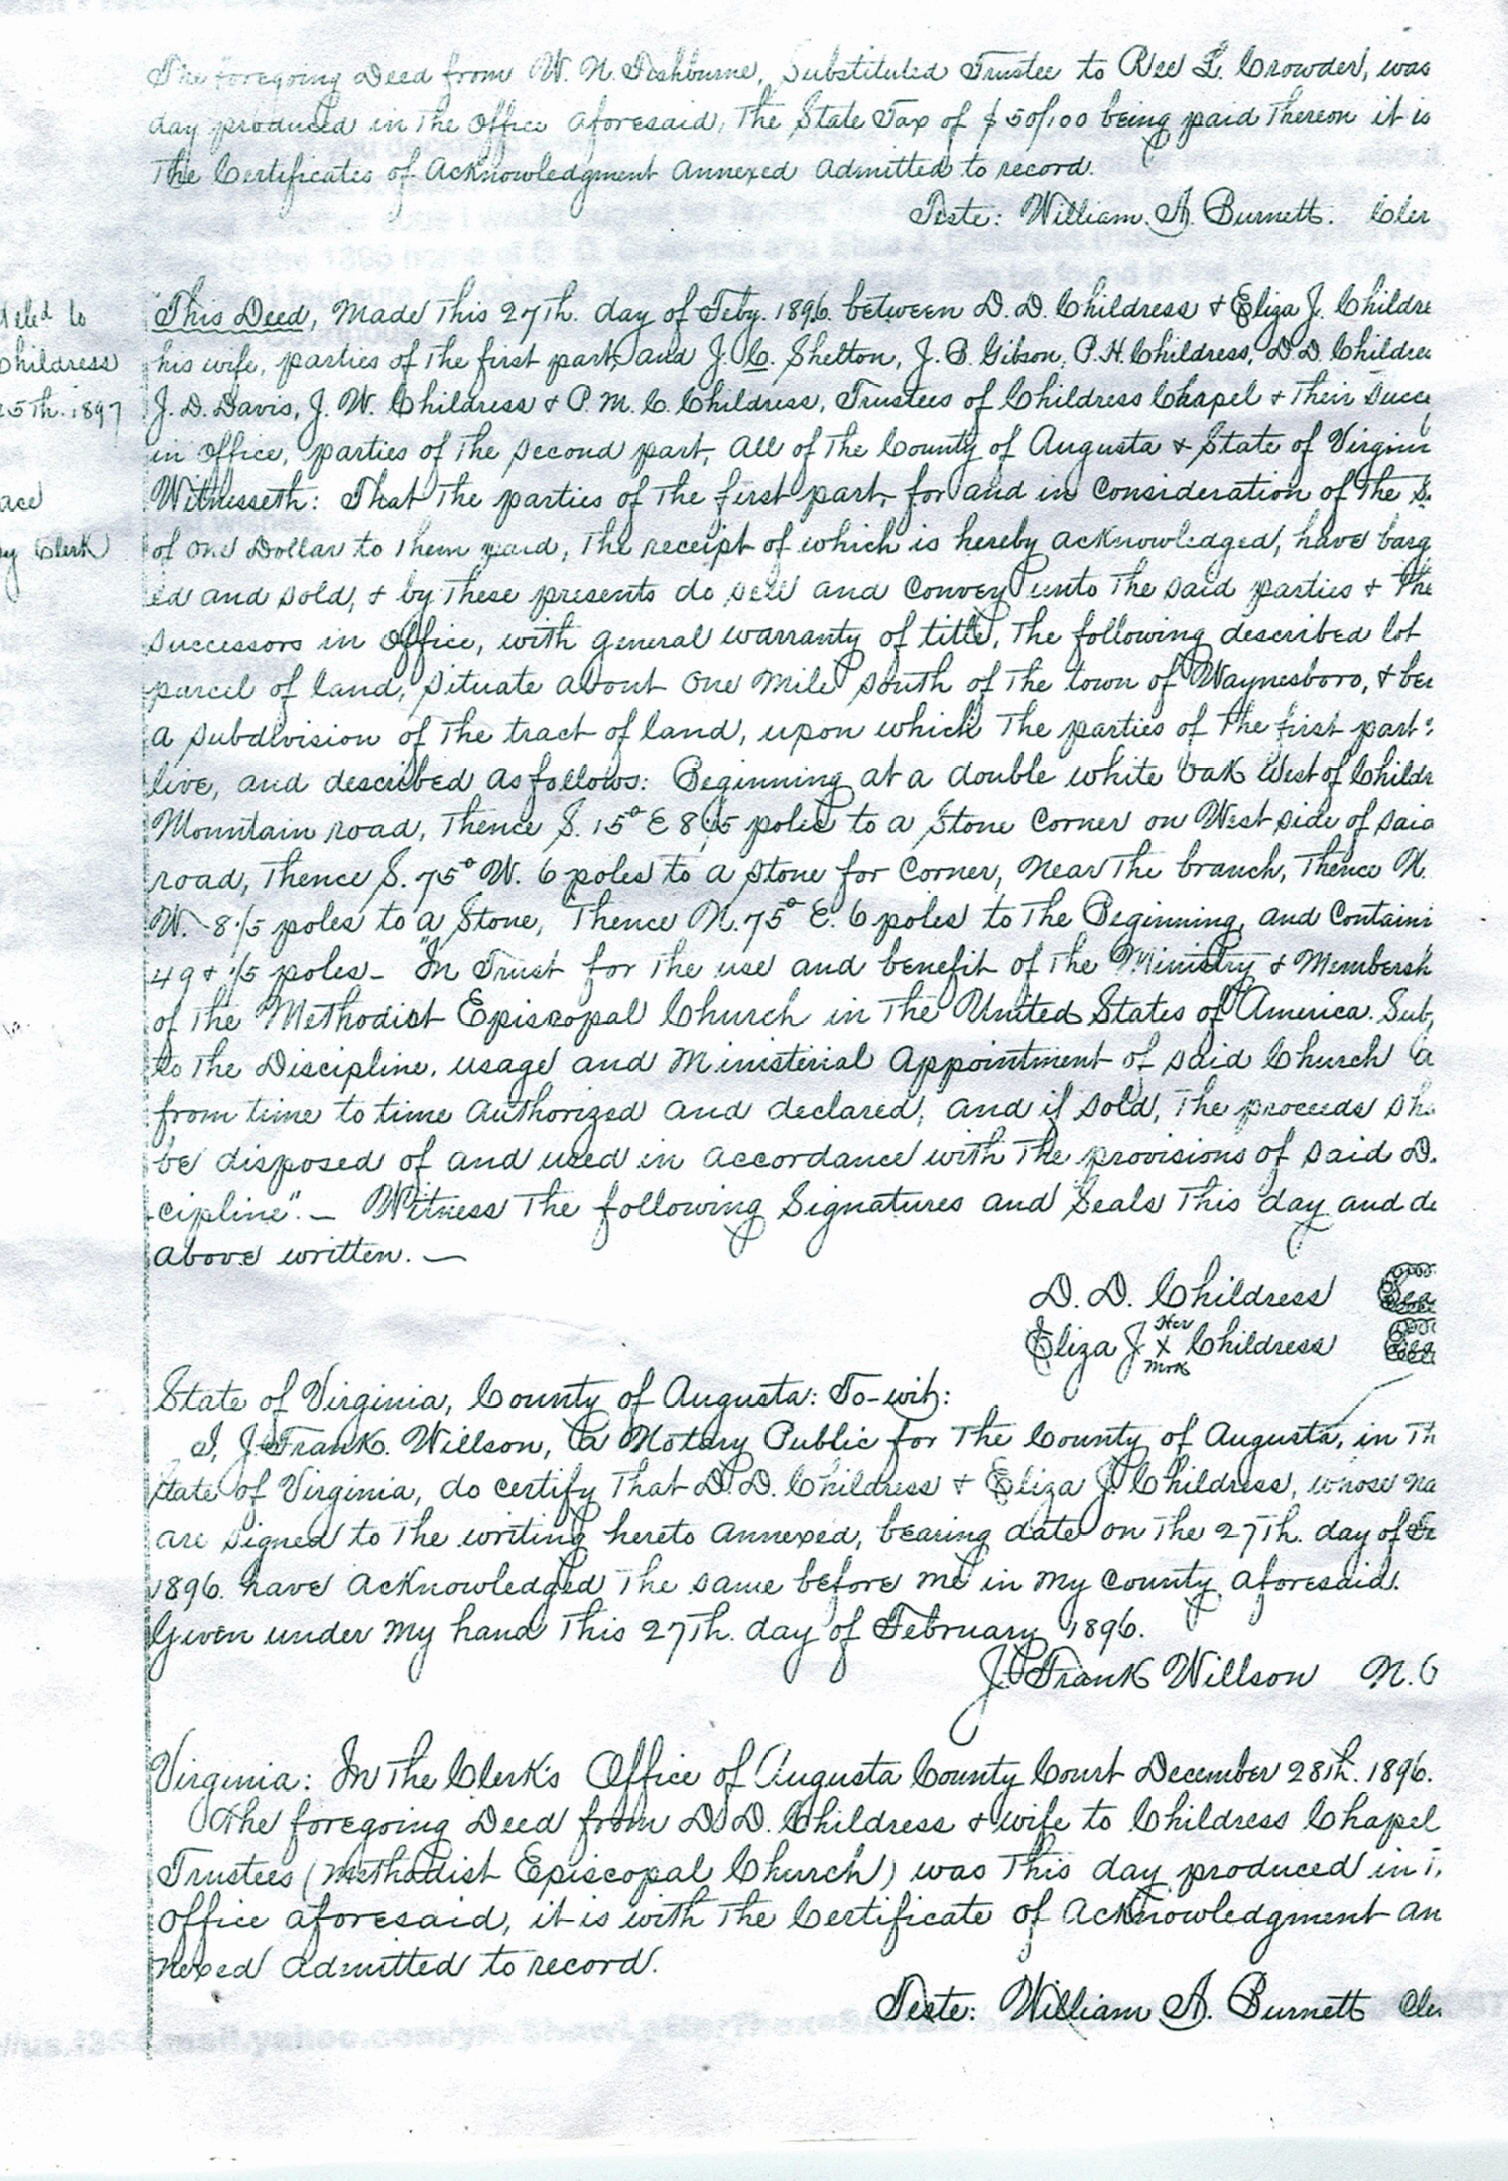 The foregoing Deed from W. N. Fishburne, Substituted Trustee to Ree L. Crowder, was
day produced in the Office aforesaid, The State Tax of $ 50/100 being paid Thereon it is
The Certificates of Acknowledgment Annexed Admitted to record.
Teste: William. A. Burnett. Cler
This Deed, Made This 27Th. day of Feby. 1896. between D. D. Childress & Eliza J. Childre
his wife, parties of the first part, and J. C. Shelton, J. B. Gibson, P. H. Childress, D. D. Childres
J. D. Davis, J. W. Childress & P. M. C. Childress, Trustees of Childress Chapel & Their Succe
in Office, parties of the second part, All of the County of Augusta & State of Virgini
Witnesseth: That The parties of The first part, for and in Consideration of The S.
of One Dollar to Them paid, The receipt of which is hereby acknowledged, have barg
ed and sold, & by These presents do sell and Convey unto The said parties & The
successors in Office, with general warranty of title, The following described lot
parcel of land, situate about One Mile South of The town of Waynesboro, & bei
a subdivision of The tract of land, upon which The parties of The first part
live, and described as follows: Beginning at a double white Oak West of Childr
Mountain road, Thence S. 15° E 8 1/5 poles to a Stone Corner on West side of said
road, Thence S. 75° W. 6 poles to a stone for Corner, Near The branch, Thence N.
W. 8 1/5 poles to a Stone, Thence N. 75° E. 6 poles to The Beginning, and Containi
49 & 1/5 poles- "In Trust for The use and benefit of The Ministry & Membersh
of The Methodist Episcopal Church in The United States of America. Sub,
to The Discipline, usage and Ministerial Appointment of said Church a
from time to time Authorized and declared, and if sold, The proceeds sha
be disposed of and used in accordance with The provisions of said D.
cipline". _ Witness The following Signatures and Seals This day and
above written. _
D. D. Childress Sea
Her
Eliza J. X Childress Sea
Mark
State of Virginia, County of Augusta: To-wit:
I, J. Frank. Willson, a Notary Public for The County of Augusta, in Th
State of Virginia, do certify That D. D. Childress & Eliza J. Childress, whose na
are signed to The writing hereto Annexed, bearing date on The 27Th. day of Fe
1896. have acknowledged The same before me in My County aforesaid.
Given under My hand This 27Th. day of February 1896.
J. Frank Willson N. P
Virginia: In The Clerk's Office of Augusta County Court December 28th. 1896.
The foregoing Deed from D. D. Childress & wife to Childress Chapel
Trustees (Methodist Episcopal Church) was This day produced in T.
Office aforesaid, it is with The Certificate of Acknowledgment an
nexed admitted to record.
Teste: William A. Burnett Cler
to
Childress
5Th. 1897
Clerk